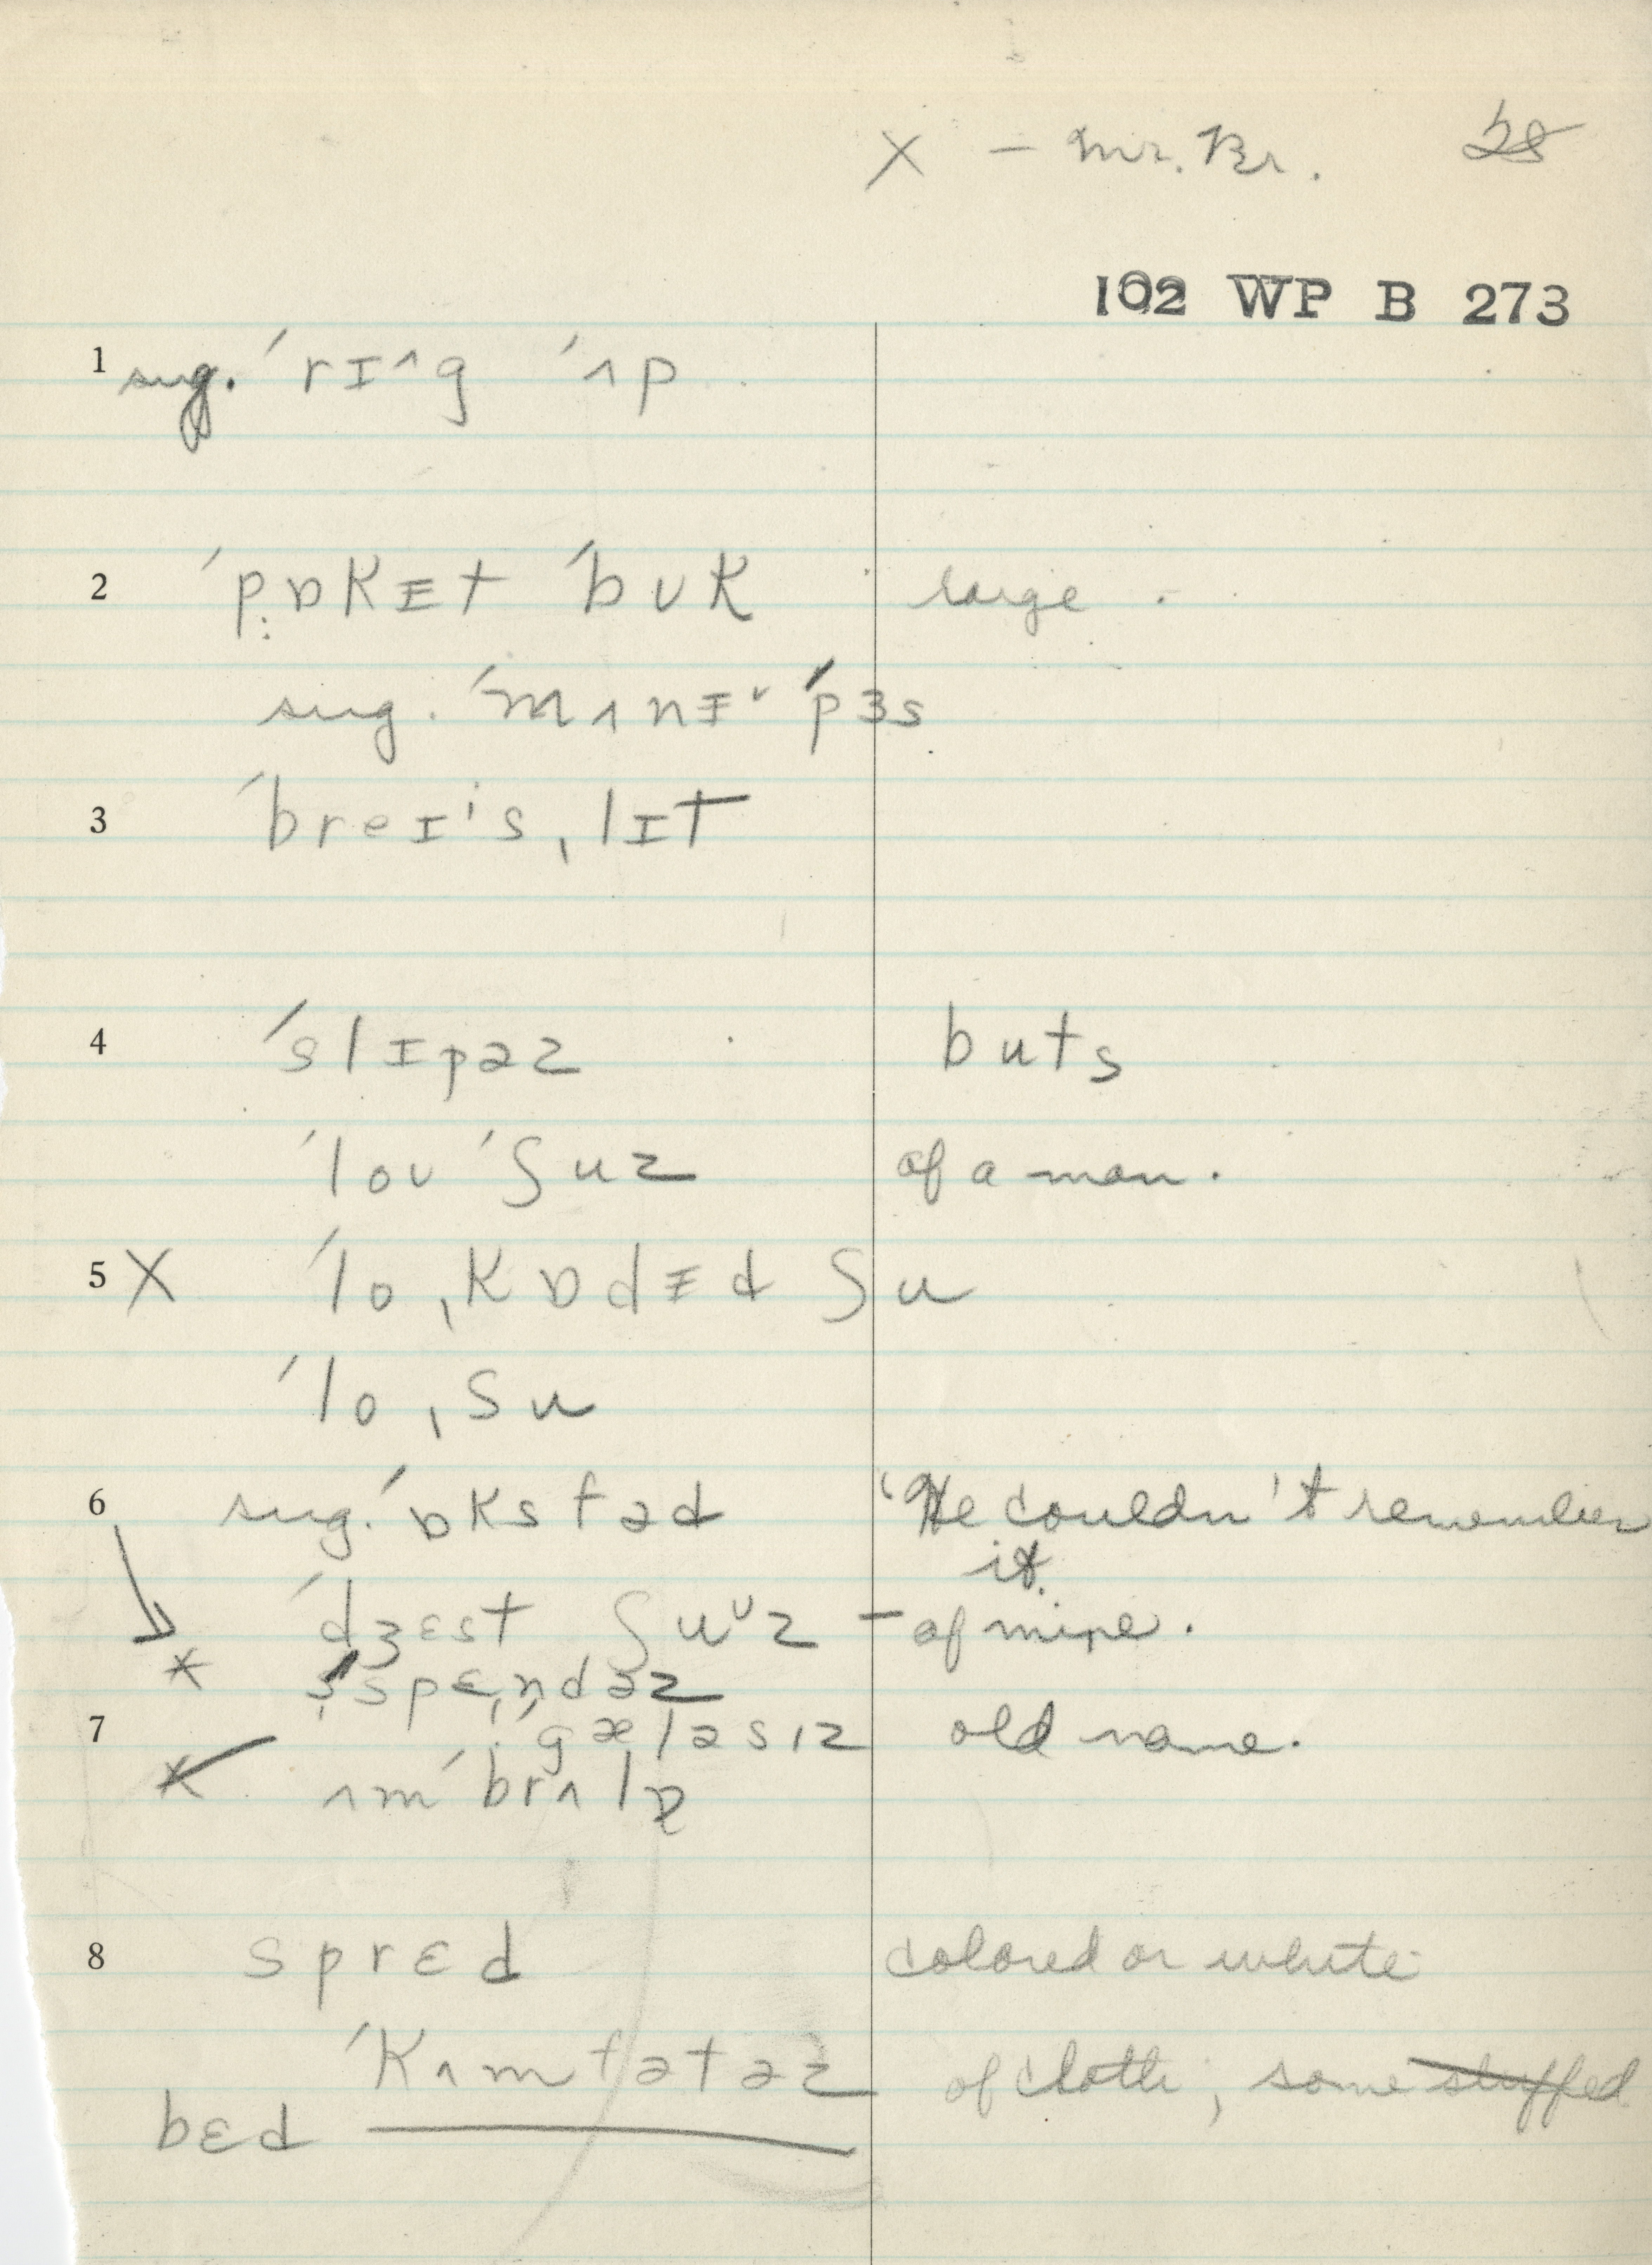 X – Mr. Br. 28
102 WP B 273
1 sug. ˈrɪ^g ˈʌp
2 ˈpɒkɪ̵t ˈbʊk large.
sug. ˈmʌnɪ̵ˇ ˈpɜs
3 ˈbreɪˈsˌlɪt
4 ˈslɪpəz buts
ˈloʊ ˈʃuz of a man.
5 X ˈloˌkɒdɪ̵d ʃu
ˈloˌʃu
6 sug. ˈɒksfəd 'He couldn't remember
it.
ˈdʒɛst ʃuˇz – of mine.
* sˈspɛndəz
7 ˈgæləsɪz old name.
* ʌmˈbrʌlə
8 sprɛd colored or white
ˈkʌmfətəz of cloth, some stuffed
bɛd ———